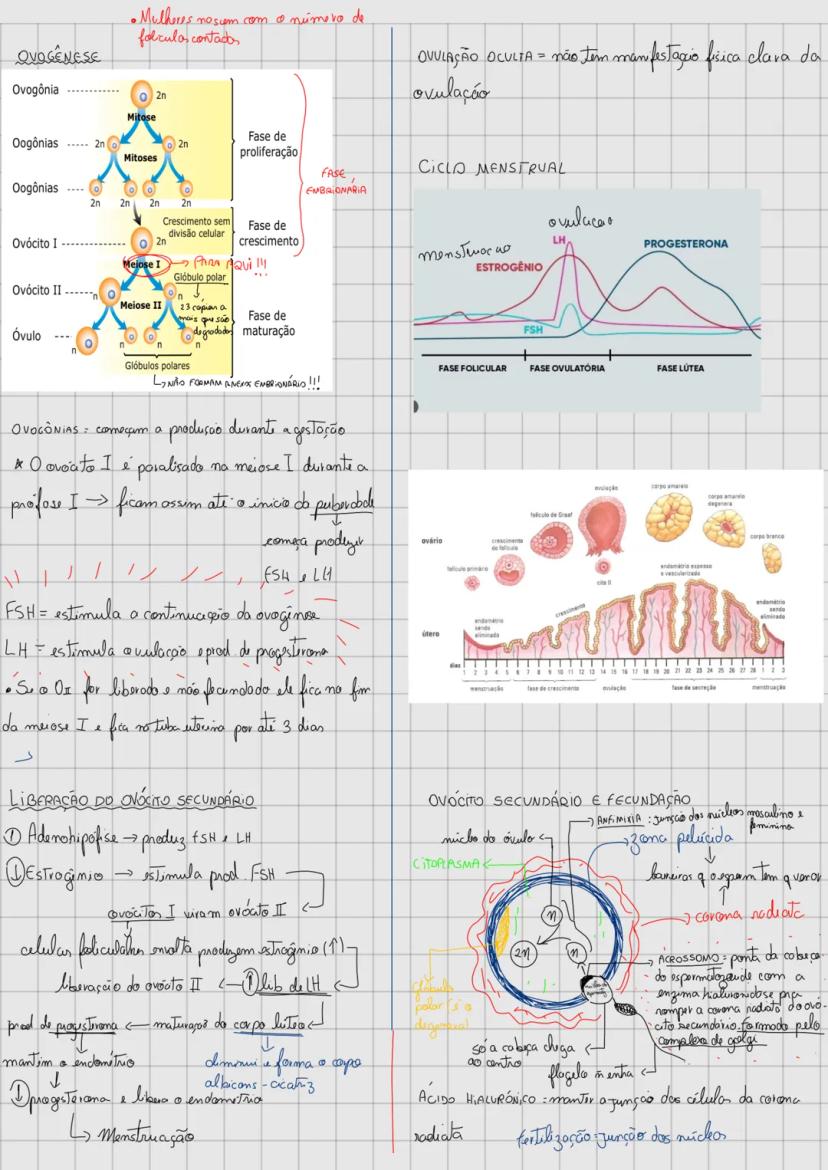 • Mulheres nascem com o número de
folículos contados
OVOGÊNESE
Ovogônia
2n
Mitose
Oogônias
2n
2n
Mitoses
Fase de
proliferação
Oogônias
2n
2n
2n
2n
FASE
EMBRIONÁRIA
Crescimento sem
divisão celular
Fase de
crescimento
Ovócito I
2n
Meiose I
→ PARA AQUI!!!
Glóbulo polar
Ovócito II
n
n
Meiose II
23 cópias a
mais que são
degradados
Fase de
maturação
Óvulo
n
n
n
n
Glóbulos polares
↳ NÃO FORMAM ANEXO EMBRIONÁRIO!!!
OVOGÔNIAS = começam a produção durante a gestação
* O ovócito I é paralisado na meiose I durante a
prófase I → ficam assim até o início da puberdade
começa produzir
FSH e LH
FSH = estimula a continuação da ovogênese
LH = estimula ovulação e prod. de progesterona
• Se o OII for liberado e não fecundado ele fica no fim
da meiose I e fica na tuba uterina por até 3 dias
LIBERAÇÃO DO OVÓCITO SECUNDÁRIO
↑ Adenohipófise → produz FSH e LH
↓ Estrogênio → estimula prod. FSH
ovócitos I viram ovócito II
celulas foliculares envolta produzem estrogênio (↑)
liberação do ovócito II ← ↑ lib de LH
prod de progesterona ← maturação do corpo lúteo
mantém o endométrio
diminui e forma o corpo
albicans - cicatriz
↓ progesterona e libera o endométrio
↳ Menstruação
OVULAÇÃO OCULTA = não tem manifestação física clara da
ovulação
CICLO MENSTRUAL
ovulação
menstruação
LH
PROGESTERONA
ESTROGÊNIO
FSH
FASE FOLICULAR
FASE OVULATÓRIA
FASE LÚTEA
ovulação
corpo amarelo
folículo de Graaf
corpo amarelo
degenera
ovário
crescimento
do folículo
corpo branco
folículo primário
cito II
endométrio espesso
e vascularizado
crescimento
endométrio
sendo
eliminado
endométrio
sendo
eliminado
útero
dias
1 2 3 4 5 6 7 8 9 10 11 12 13 14 15 16 17 18 19 20 21 22 23 24 25 26 27 28 1 2 3
menstruação
fase de crescimento
ovulação
fase de secreção
menstruação
OVÓCITO SECUNDÁRIO E FECUNDAÇÃO
→ ANFIMIXIA: junção dos núcleos masculino e
feminino
núcleo do óvulo
→ zona pelúcida
CITOPLASMA
barreiras q o esperm tem q
→ corona radiata
n
2n
n
glóbulo
polar
→ ACROSSOMO = ponta da cabeça
do espermatozoide com a
enzima hialuronidase pra
romper a corona radiata do ovó-
cito secundário, formado pelo
complexo de golgi
só a cabeça chega
ao centro
flagelo ñ entra
ÁCIDO HIALURÔNICO = manter a junção das células da corona
radiata
fertilização = junção dos núcleos